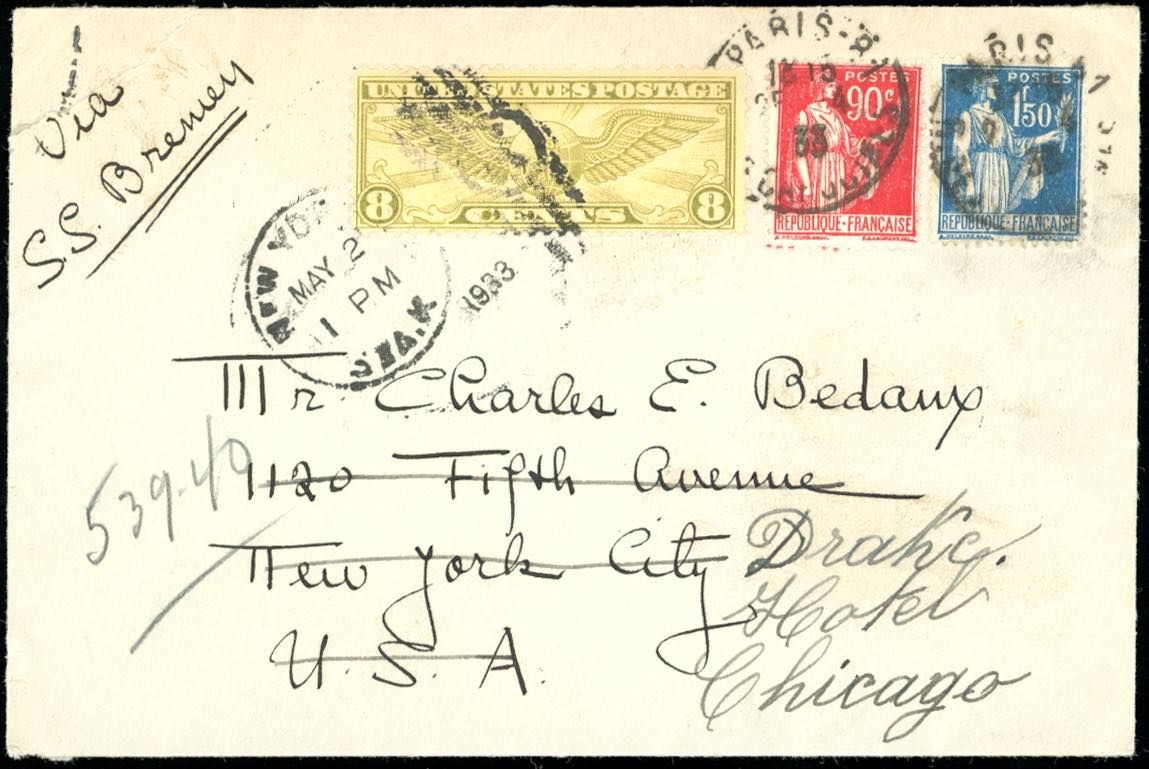 Via
S.S. Bremen
UNITED STATES POSTAGE
8 CENTS 8
PARIS-8
18 15
33
POSTES
90c
REPUBLIQUE-FRANÇAISE
PARIS
POSTES
1f50
REPUBLIQUE-FRANÇAISE
NEW YORK
MAY 2
11 PM
1933
Mr Charles E. Bedaux
1120 Fifth Avenue
539-40
New York City
U.S.A.
Drake
Hotel
Chicago